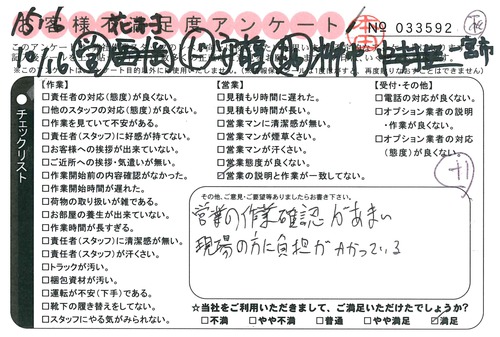 お客様不満足度アンケート
No 033592
チェックリスト
【作業】
□責任者の対応(態度)が良くない。
□他のスタッフの対応(態度)が良くない。
□作業を見ていて不安がある。
□責任者(スタッフ)に好感が持てない。
□お客様への挨拶が出来ていない。
□ご近所への挨拶・気遣いが無い。
□作業開始前の内容確認がなかった。
□作業開始時間が遅れた。
□荷物の取り扱いが雑である。
□お部屋の養生が出来ていない。
□作業時間が長すぎる。
□責任者(スタッフ)に清潔感が無い。
□責任者(スタッフ)が汗くさい。
□トラックが汚い。
□梱包資材が汚い。
□運転が不安(下手)である。
□靴下の履き替えをしてない。
□スタッフにやる気がみられない。
【営業】
□見積もり時間に遅れた。
□見積もり時間が長い。
□営業マンに清潔感が無い。
□営業マンが煙草くさい。
□営業マンが汗くさい。
□営業態度が良くない。
☑営業の説明と作業が一致してない。
【受付・その他】
□電話の対応が良くない。
□オプション業者の説明
・作業が良くない。
□オプション業者の対応
(態度)が良くない。
+1
その他、ご意見・ご要望等ありましたらお書き下さい。
営業の作業確認があまい
現場の方に負担がかかっている
☆当社をご利用いただきまして、ご満足いただけたでしょうか?
□不満 □やや不満 □普通 □やや満足 ☑満足